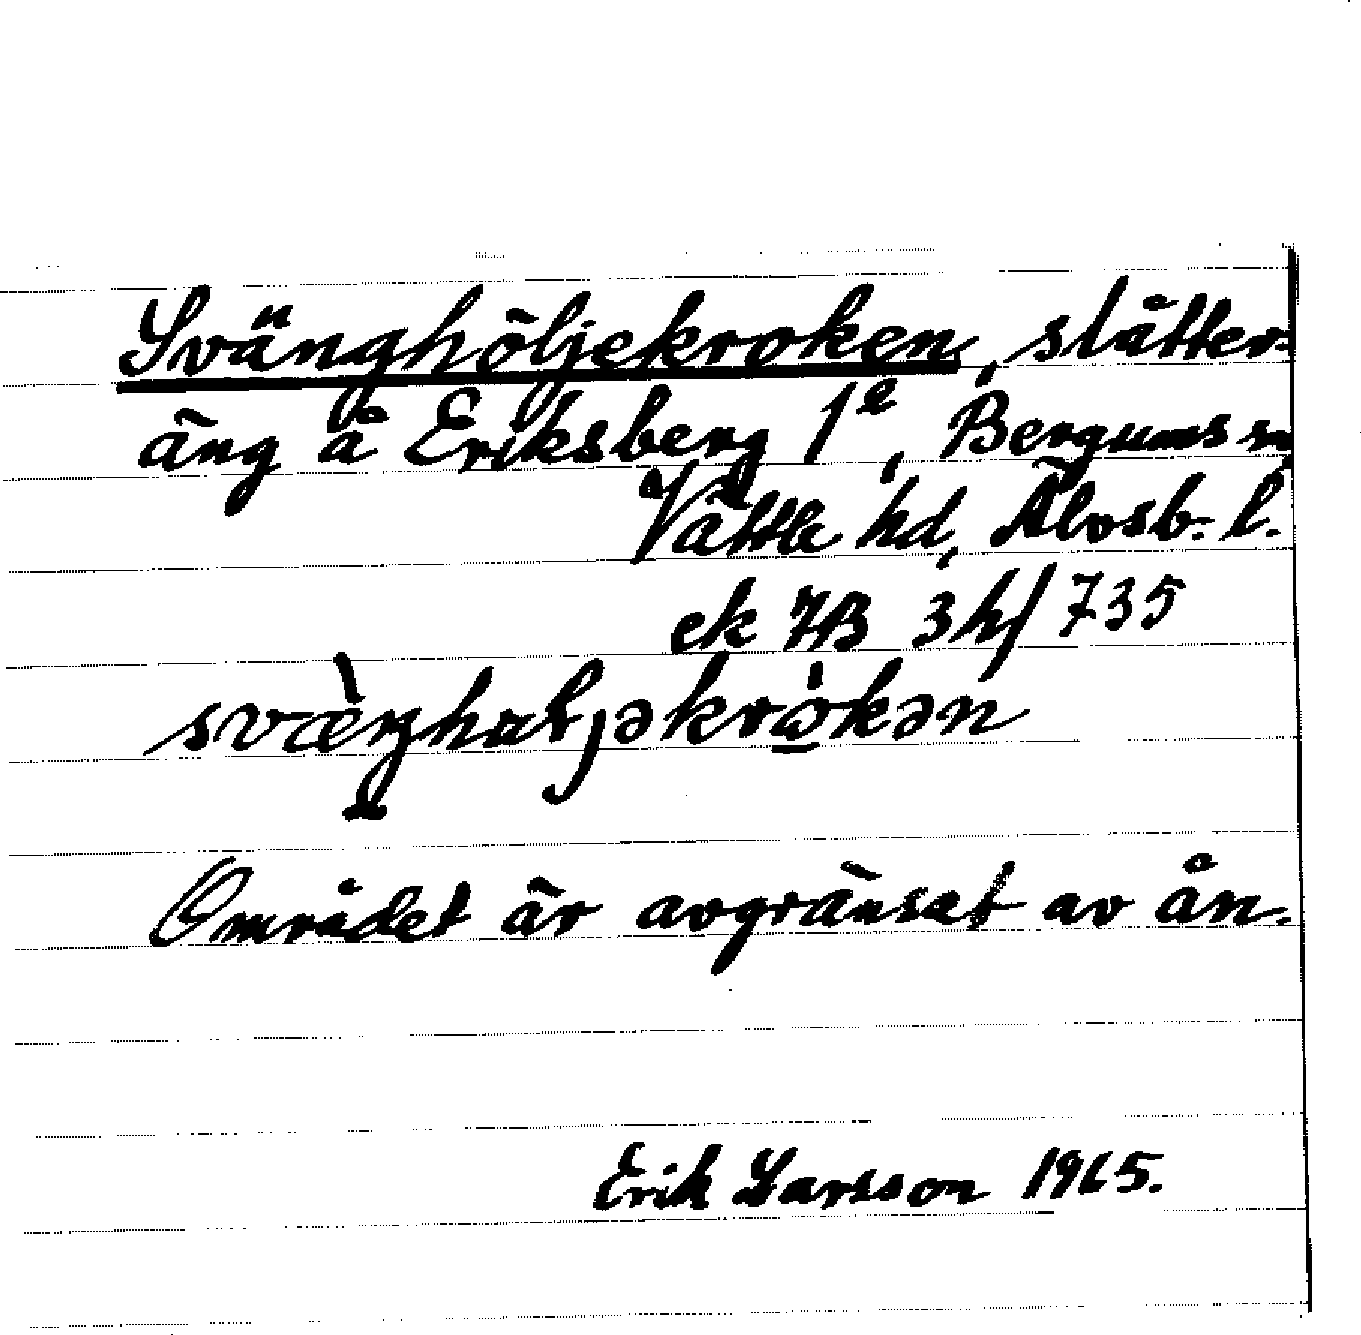 Svänghöljekroken, slåtter-
äng å Eriksberg 1e, Bergums sn,
Vättle hd, Älvsb. l.
ek 7B 3h/735
Området är avgränsat av ån.
Erik Larsson 1965.